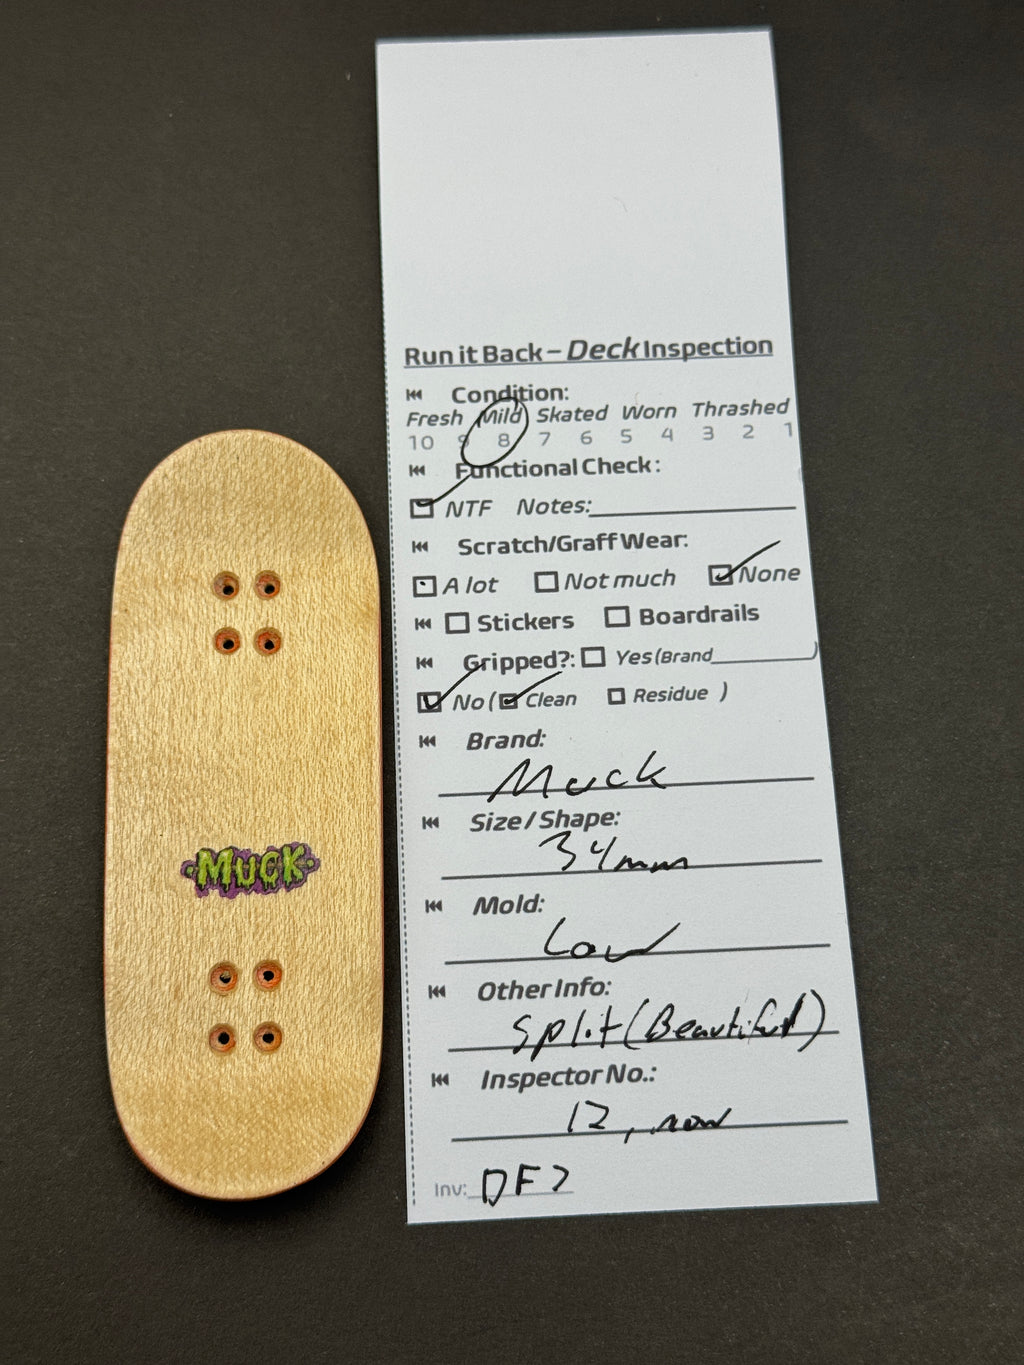 MUCK
Run it Back – Deck Inspection
Condition:
Fresh Mild Skated Worn Thrashed
10 9 8 7 6 5 4 3 2 1
Functional Check:
NTF Notes:
Scratch/Graff Wear:
A lot Not much None
Stickers Boardrails
Gripped?: Yes (Brand )
No ( Clean Residue )
Brand:
Muck
Size/Shape:
34mm
Mold:
Low
Other Info:
Split (Beautiful)
Inspector No.:
12,
Inv: DF7